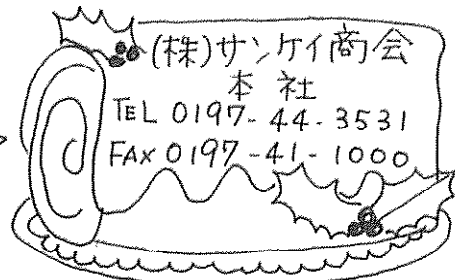 (株)サンケイ商会
本社
TEL 0197-44-3531
FAX 0197-41-1000